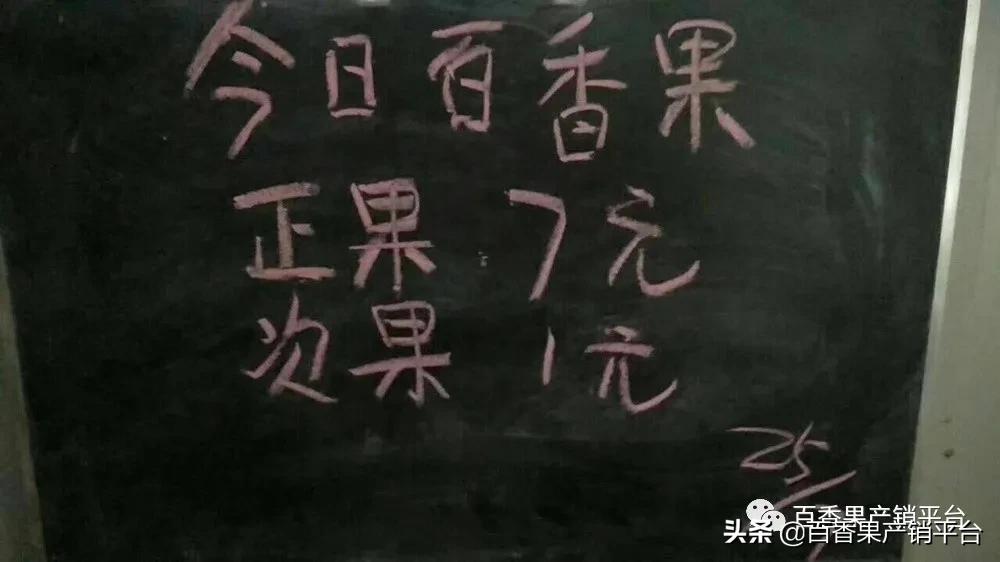 今日百香果
正果:7元
次果 1元
25/
百香果产销平台
头条@百香果产销平台